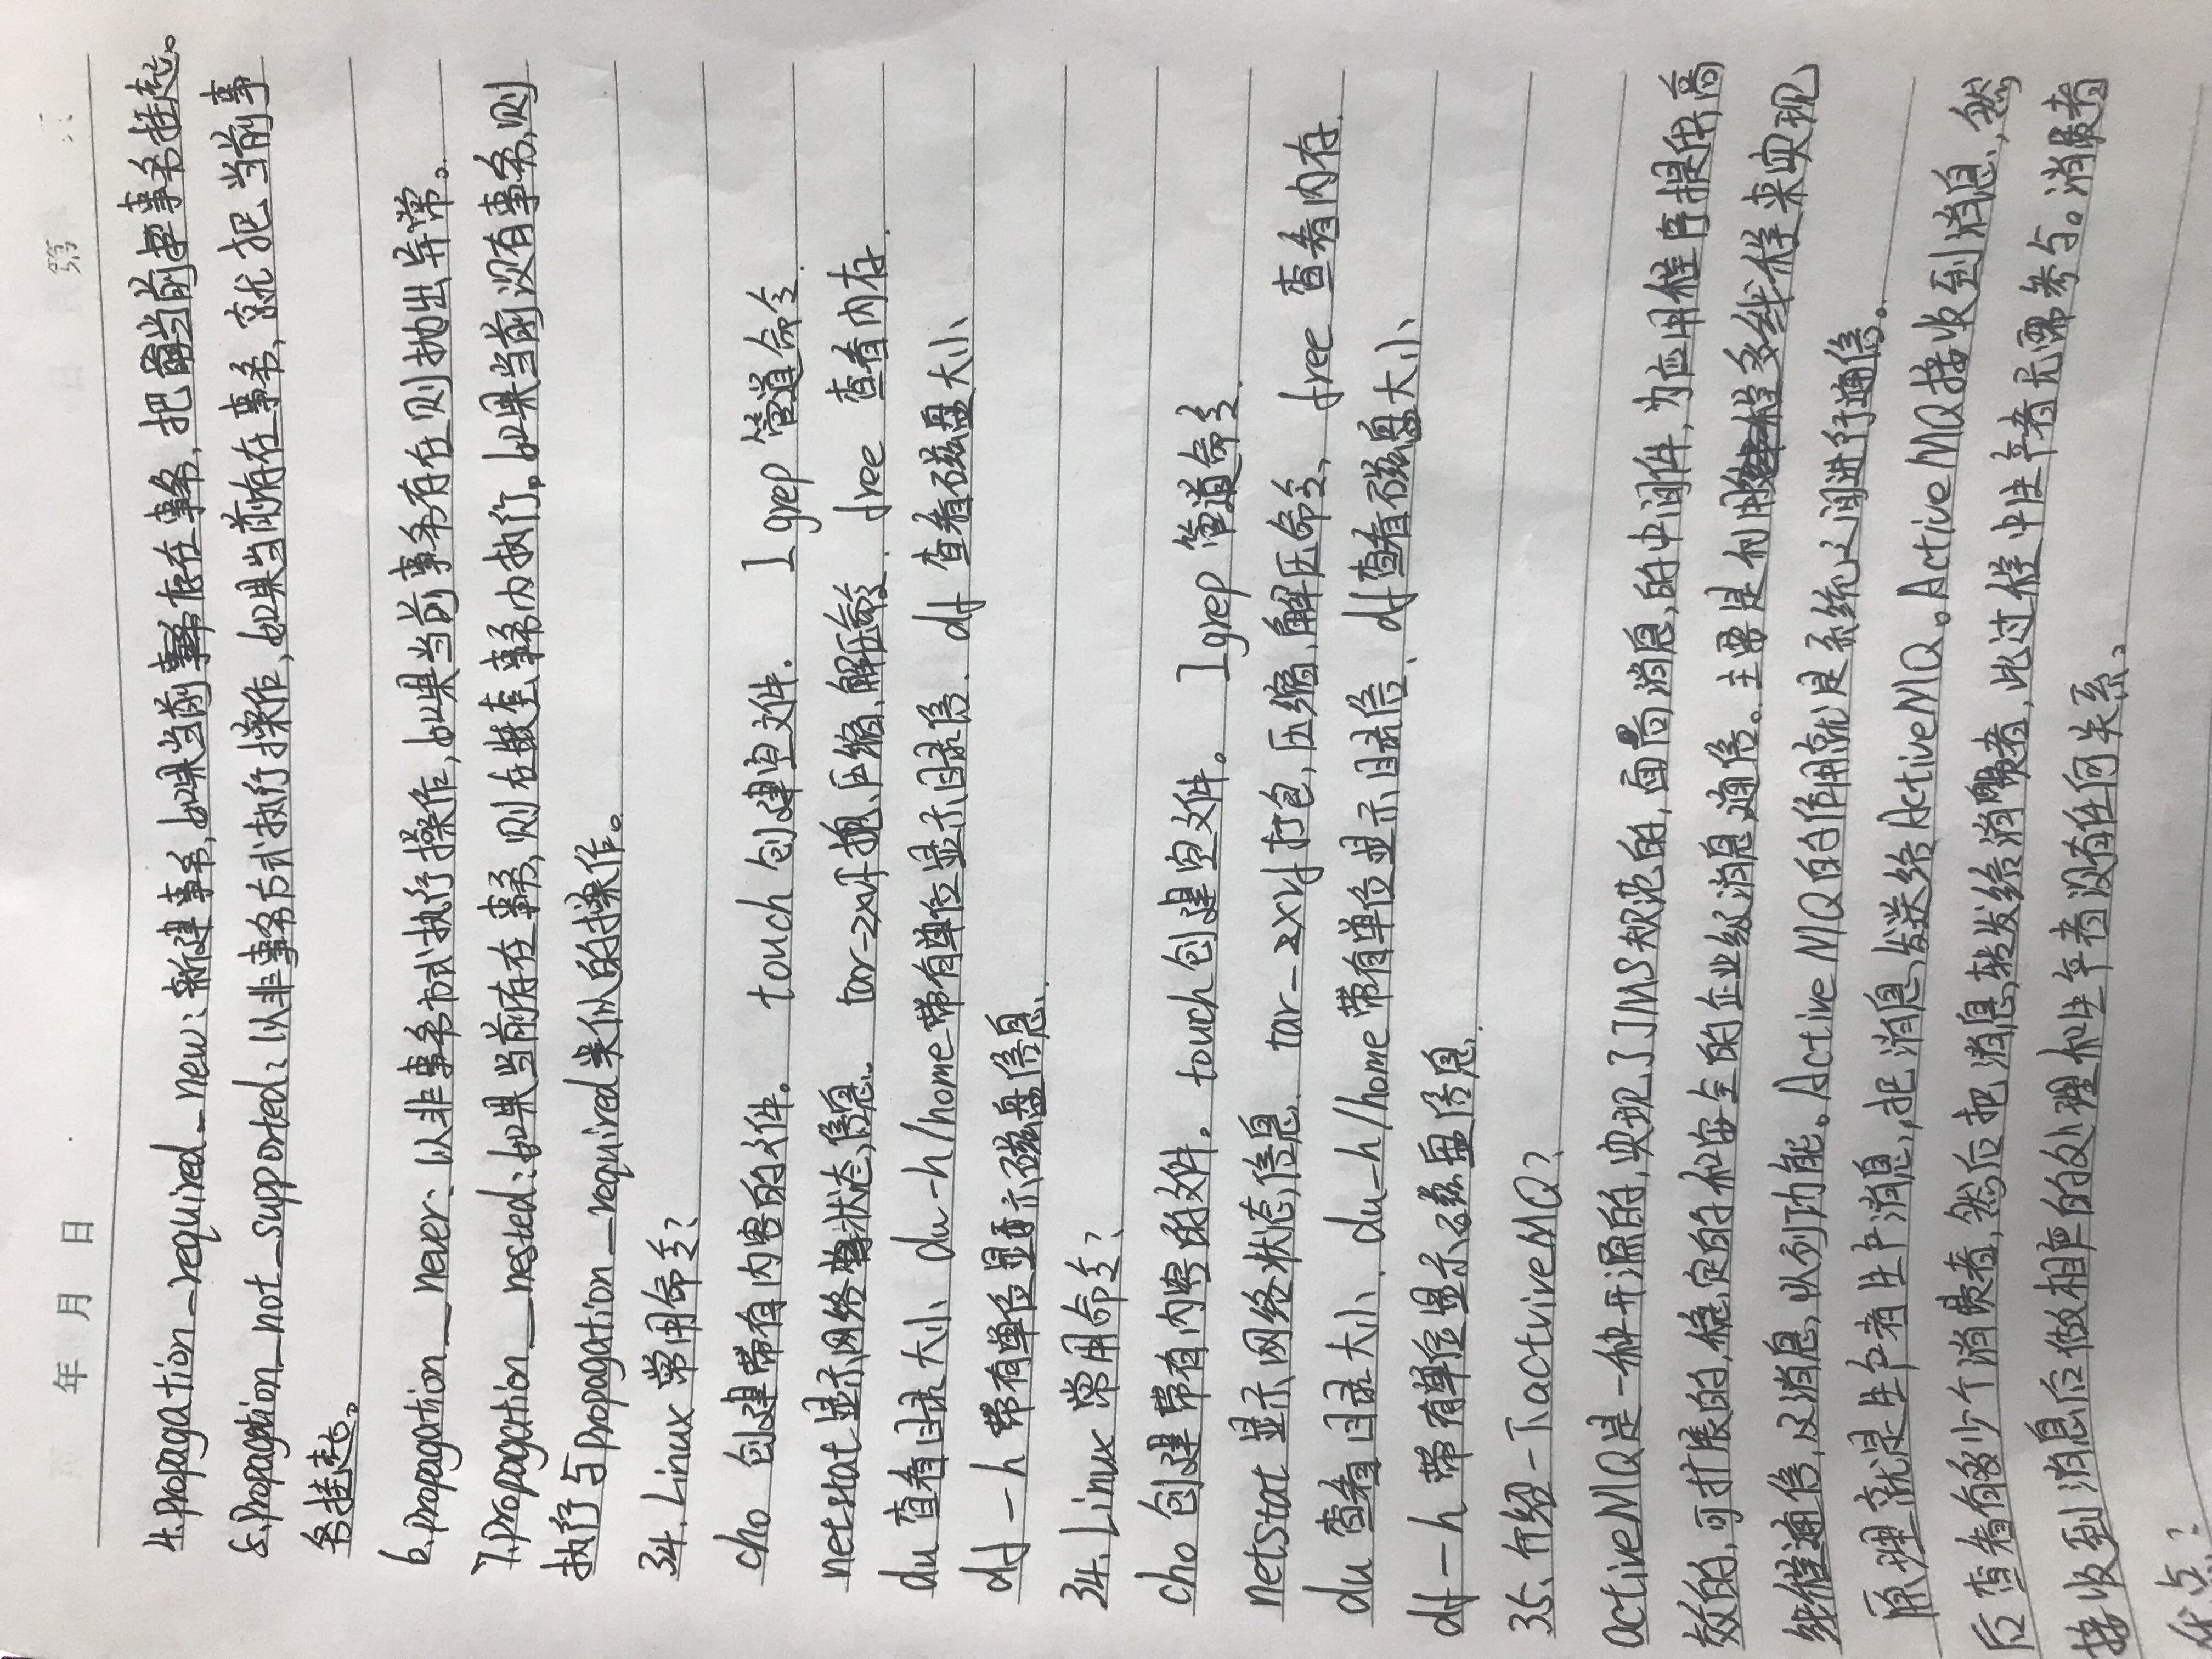 年 月 日 第 页
4.propagation_required_new:新建事务,如果当前事务存在事务,把当前事务挂起。
5.Propagation_not_supported:以非事务方式执行操作,如果当前存在事务,就把当前事
务挂起。
6.propagation_never:以非事务方式执行操作,如果当前事务存在则抛出异常。
7.propagation_nested:如果当前存在事务,则在嵌套事务内执行。如果当前没有事务,则
执行与propagation_required类似的操作。
34.Linux 常用命令?
cho 创建带有内容的文件。 touch 创建空文件. I grep 管道命令.
netstat 显示网络状态信息. tar-zxvf打包、压缩、解压命令. free 查看内存.
du 查看目录大小 du-h/home带有单位显示目录信. df 查看磁盘大小
df -h 带有单位显示磁盘信息.
34.Linux 常用命令?
cho 创建带有内容的文件。 touch创建空文件。 I grep 管道命令.
netstat 显示网络状态信息. tar-zxvf打包,压缩、解压命令, free 查看内存.
du 查看目录大小. du-h/home 带有单位显示目录信. df查看磁盘大小
df -h 带有单位显示磁盘信息.
35.介绍一下actviveMQ?
activeMQ是一种开源的,实现了JMS规范的,面向消息的中间件,为应用程序提供高
效的,可扩展的,稳定的和安全的企业级消息通信。主要是利用多线程来实现
线程通信,及消息队列功能。ActiveMQ的作用就是系统之间进行通信。
原理就是生产者生产消息,把消息发送给ActiveMQ。ActiveMQ接收到消息,然
后查看有多少个消费者,然后把消息转发给消费者,此过程中生产者无需参与。消费者
接收到消息后做相应的处理和生产者没有任何关系。
优点?